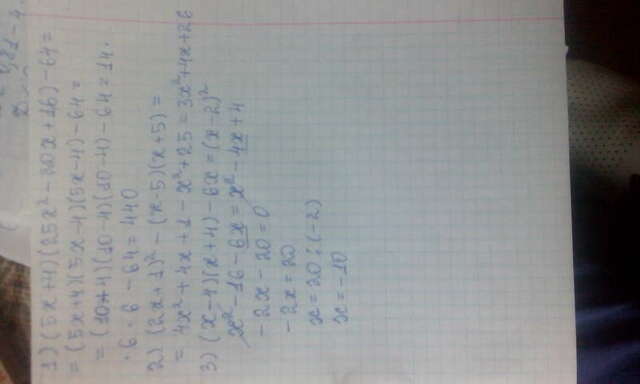 1) (5x+4)(25x²-30x+16)-64=
=(5x+4)(5x-4)(5x-4)-64=
=(10+4)(10-4)(10-4)-64=14·
·6·6-64=440
2) (2x+1)²-(x-5)(x+5)=
=4x²+4x+1-x²+25=3x²+4x+26
3) (x-4)(x+4)-6x=(x-2)²
x²-16-6x=x²-4x+4
-2x-20=0
-2x=20
x=20:(-2)
x=-10